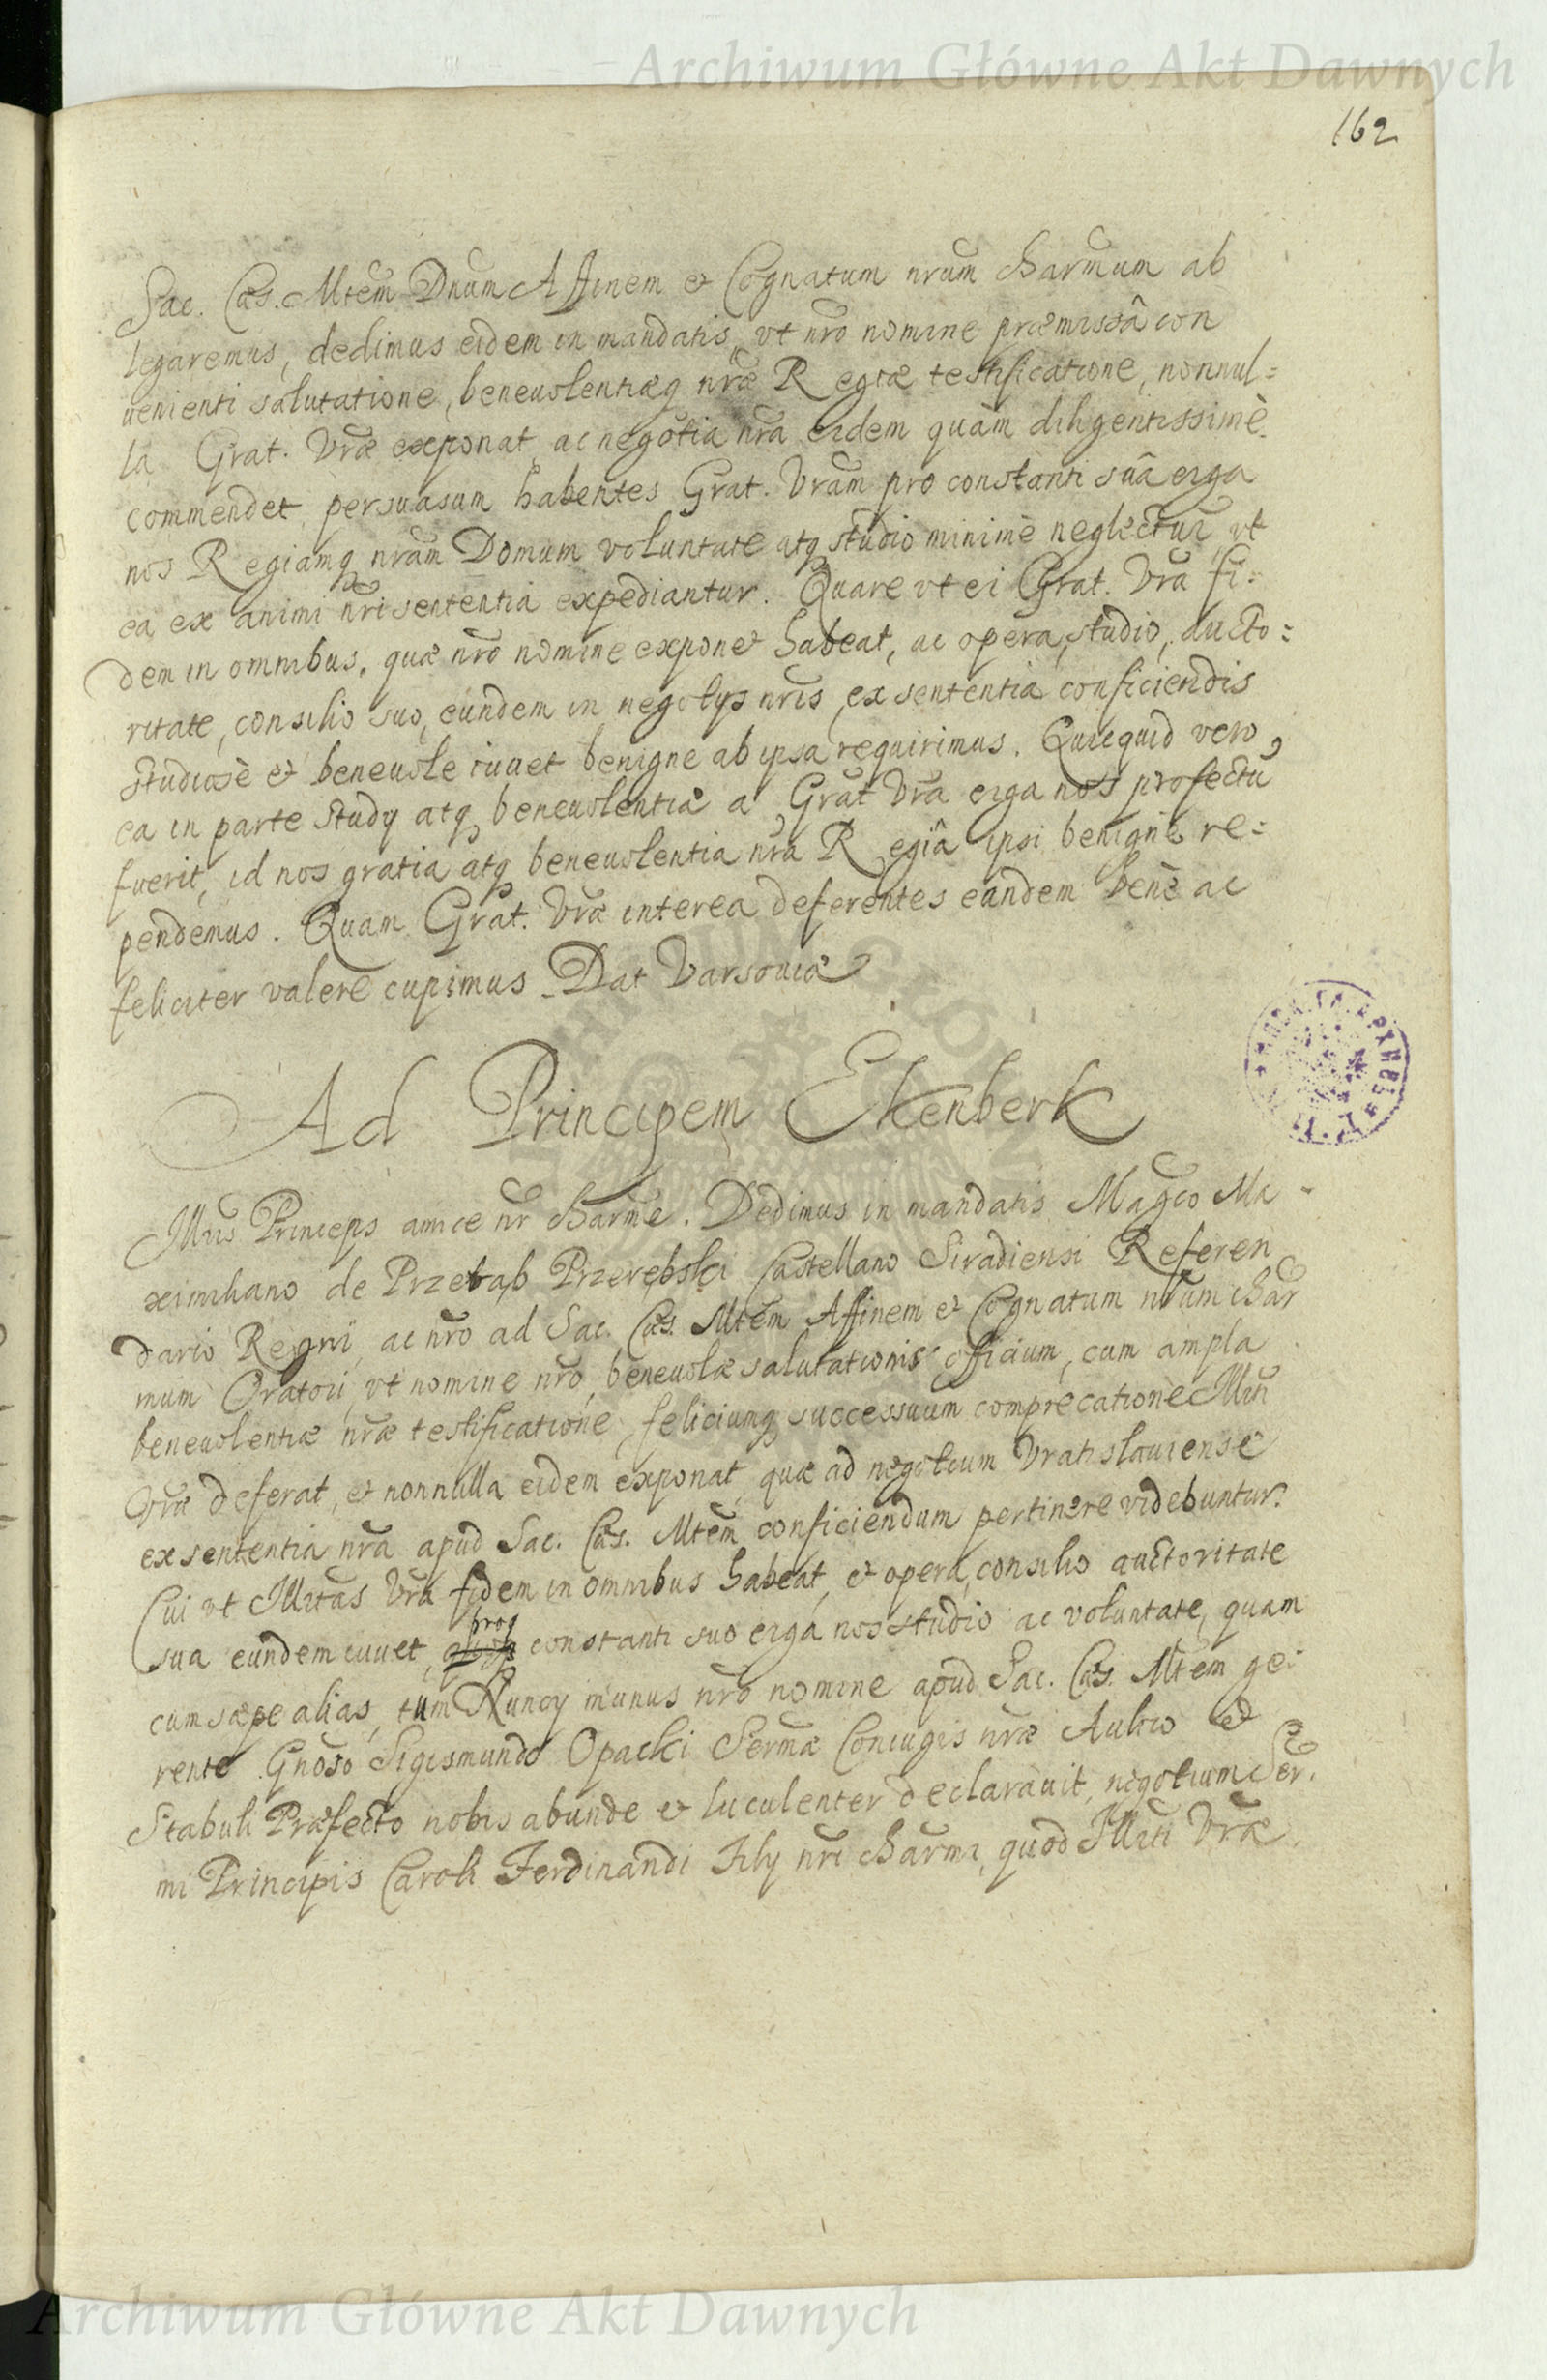 Archiwum Główne Akt Dawnych
162
Sac. Cæs. Mtem Dnum Affinem et Cognatum nrum Charmum ab
legaremus, dedimus eidem in mandatis, vt nro nomine præmissâ con
uenienti salutatione, beneuolentiæq nræ Regiæ testificatione, nonnul=
la Grat. Vræ exponat, ac negotia nra eidem quàm diligentissimè
commendet, persuasum habentes Grat. Vram pro constanti suâ erga
nos Regiamq nram Domum voluntate atq studio minimè neglectur, vt
ea ex animi nri sententia expediantur. Quare vt ei Grat. Vra fi=
dem in omnibus, quæ nro nomine exponet habeat, ac opera, studio, aucto=
ritate, consilio suo, eundem in negotys nris ex sententia conficiendis
studiosè et beneuole iuuet benigne ab ipsa requirimus. Quicquid vero
ea in parte study atq beneuolentiæ a Grat Vra erga nos profectu
fuerit, id nos gratia atq beneuolentia nra Regiâ ipsi benignè re=
pendemus. Quam Grat. Vræ interea deferentes eandem benè ac
feliciter valere cupimus. Dat Varsouiæ
Ad Principem Ekenberk
Illmis Princeps amice nr Charme. Dedimus in mandatis Magco Ma-
ximiliano de Przerąb Przerębski Castellano Siradiensi Referen
dario Regni, ac nro ad Sac. Cæs. Mtem Affinem et Cognatum nrum char
mum Oratori, vt nomine nro, beneuolæ salutationis officium, cum ampla
beneuolentiæ nræ testificatione, feliciumq successuum comprecatione Illtri
Vræ deferat, et nonnulla eidem exponat, quæ ad negotium Vratislauiense
ex sententia nra apud Sac. Cæs. Mtem conficiendum pertinere videbuntur.
Cui vt Illtas Vra fidem in omnibus habeat, et opera, consilio auctoritate
sua eundem iuuet, proq constanti suo erga nos studio ac voluntate, quam
cum sæpe alias, tum Nuncy munus nro nomine apud Sac. Cæs. Mtem ge=
rente Gnoso Sigismundo Opacki Sermæ Coniugis nræ Aulico et
Stabuli Præfecto nobis abunde et luculenter declarauit, negotium Ser.
mi Principis Caroli Ferdinandi Fily nri charmi, quod Illti Vræ
Archiwum Główne Akt Dawnych